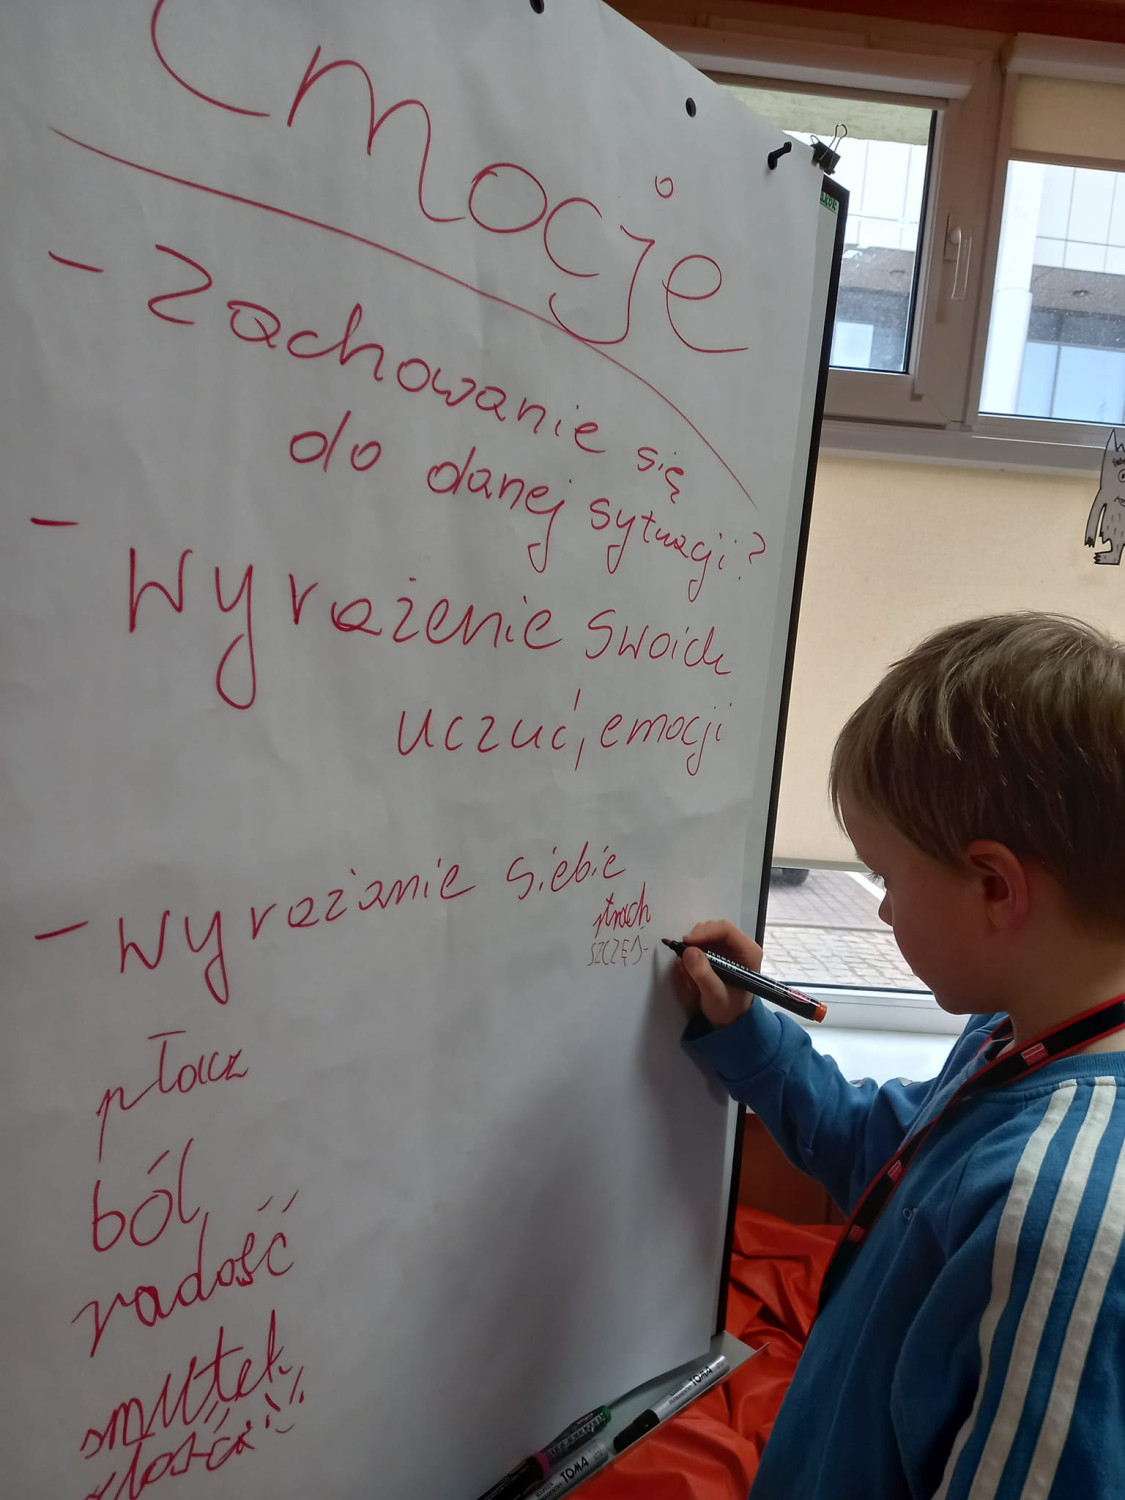 Emocje
- Zachowanie się
do danej sytuacji?
- Wyrażenie swoich
uczuć, emocji
- Wyrażanie siebie
strach
SZCZĘŚ-
płacz
ból
radość
smutek
złość
TOMA
TOMA
PERMANENT
MARKER